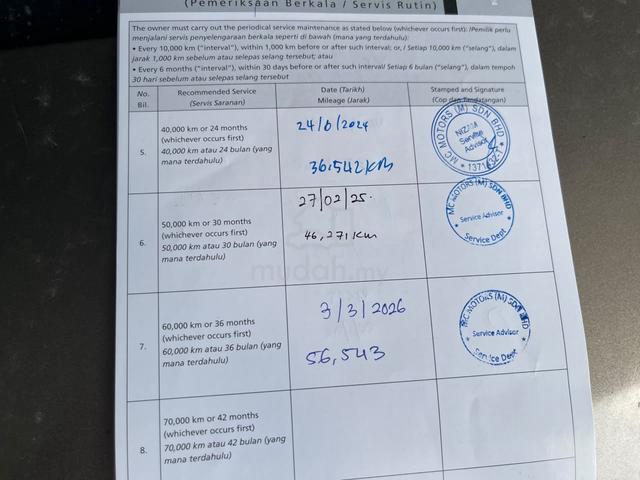 (Pemeriksaan Berkala / Servis Rutin)
The owner must carry out the periodical service maintenance as stated below (whichever occurs first): /Pemilik perlu
menjalani servis penyelengaraan berkala seperti di bawah (mana yang terdahulu):
• Every 10,000 km ("interval"), within 1,000 km before or after such interval; or, / Setiap 10,000 km ("selang"), dalam
jarak 1,000 km sebelum atau selepas selang tersebut; atau
• Every 6 months ("interval"), within 30 days before or after such interval/ Setiap 6 bulan ("selang"), dalam tempoh
30 hari sebelum atau selepas selang tersebut
No.
Bil.
Recommended Service
(Servis Saranan)
Date (Tarikh)
Mileage (Jarak)
Stamped and Signature
(Cop dan Tandatangan)
5.
40,000 km or 24 months
(whichever occurs first)
40,000 km atau 24 bulan (yang
mana terdahulu)
24/6/2024
36,542 KM
MC MOTORS (M) SDN BHD
NIZAM
Service
Advisor
6.
50,000 km or 30 months
(whichever occurs first)
50,000 km atau 30 bulan (yang
mana terdahulu)
27/02/25.
46,271 km
MC MOTORS (M) SDN BHD
Service Advisor
Service Dept
mudah.my
7.
60,000 km or 36 months
(whichever occurs first)
60,000 km atau 36 bulan (yang
mana terdahulu)
3/3/2026
56,543
MC MOTORS (M) SDN BHD
Service Advisor
Service Dept
8.
70,000 km or 42 months
(whichever occurs first)
70,000 km atau 42 bulan (yang
mana terdahulu)